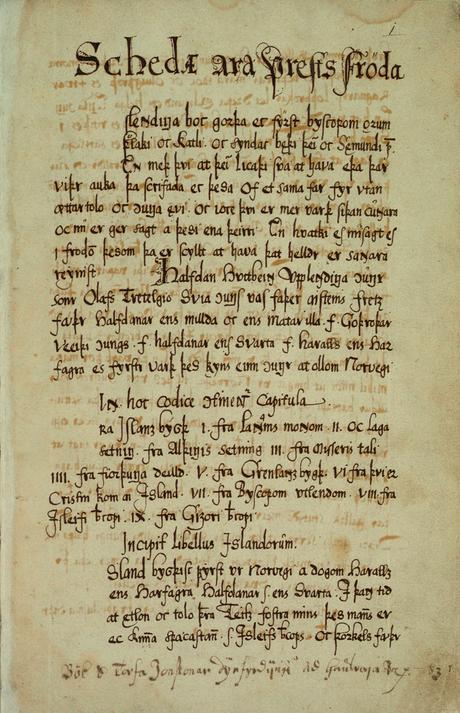 1
Schedæ ara Prests Fróda
slendinga boc gorþa ec fyrst byscopom órum
þorláki oc Katli. oc syndac bęþi þeim oc Sęmundi p.
En meþ þvi at þeim licaþi sva at hava eþa þar
viþr auka þa scrifaþa ec þesa of et sama far fyr utan
ættartolo oc conunga ęvi. oc iócc þvi er mer varþ siþan cunnara
oc nu er gerr sagt a þesi en a þeirri. En hvatki es misagt es
i frodom þesom þa er scyllt at hava þat helldr er sannara
reynist. Halfdan hvitbein Upplendinga cunungr
sonr Olafs Tretelgio Svia cunungs vas faþer Eysteins fretz
faþur Halfdanar ens millda oc ens matar illa. f. Goþroþar
Veiþi cunungs. f. halfdanar ens svarta. f. haralls ens Har
fagra es fyrstr varþ þess kyns einn cunungr at ollom Norvegi.
IN. hoc codice continentur Capitula.
ra Islanz bygþ I. fra Landnams monnom. II. oc laga
setning. fra Alþingis setning III. fra misseris tali
IIII. fra fiorþunga deilld. V. fra Grenlanz bygþ. VI fra þvi er
Cristni kom a Island. VII. fra Byscopom utlendom. VIII. fra
Isleifi bcopi. IX. fra Gizori bcopi.
Incipit libellus Islandorum.
Sland bygþisc fyrst ur Norvegi a dogom Haralls
ens Harfagra, Halfdanar s. ens svarta. I þann tid
at ætlon oc tolo þra Teitz fostra mins þess manns er
ec kunna spacastan. s. Isleifs bcops. oc þorkels faþor
Bók S Torfa Jonssonar